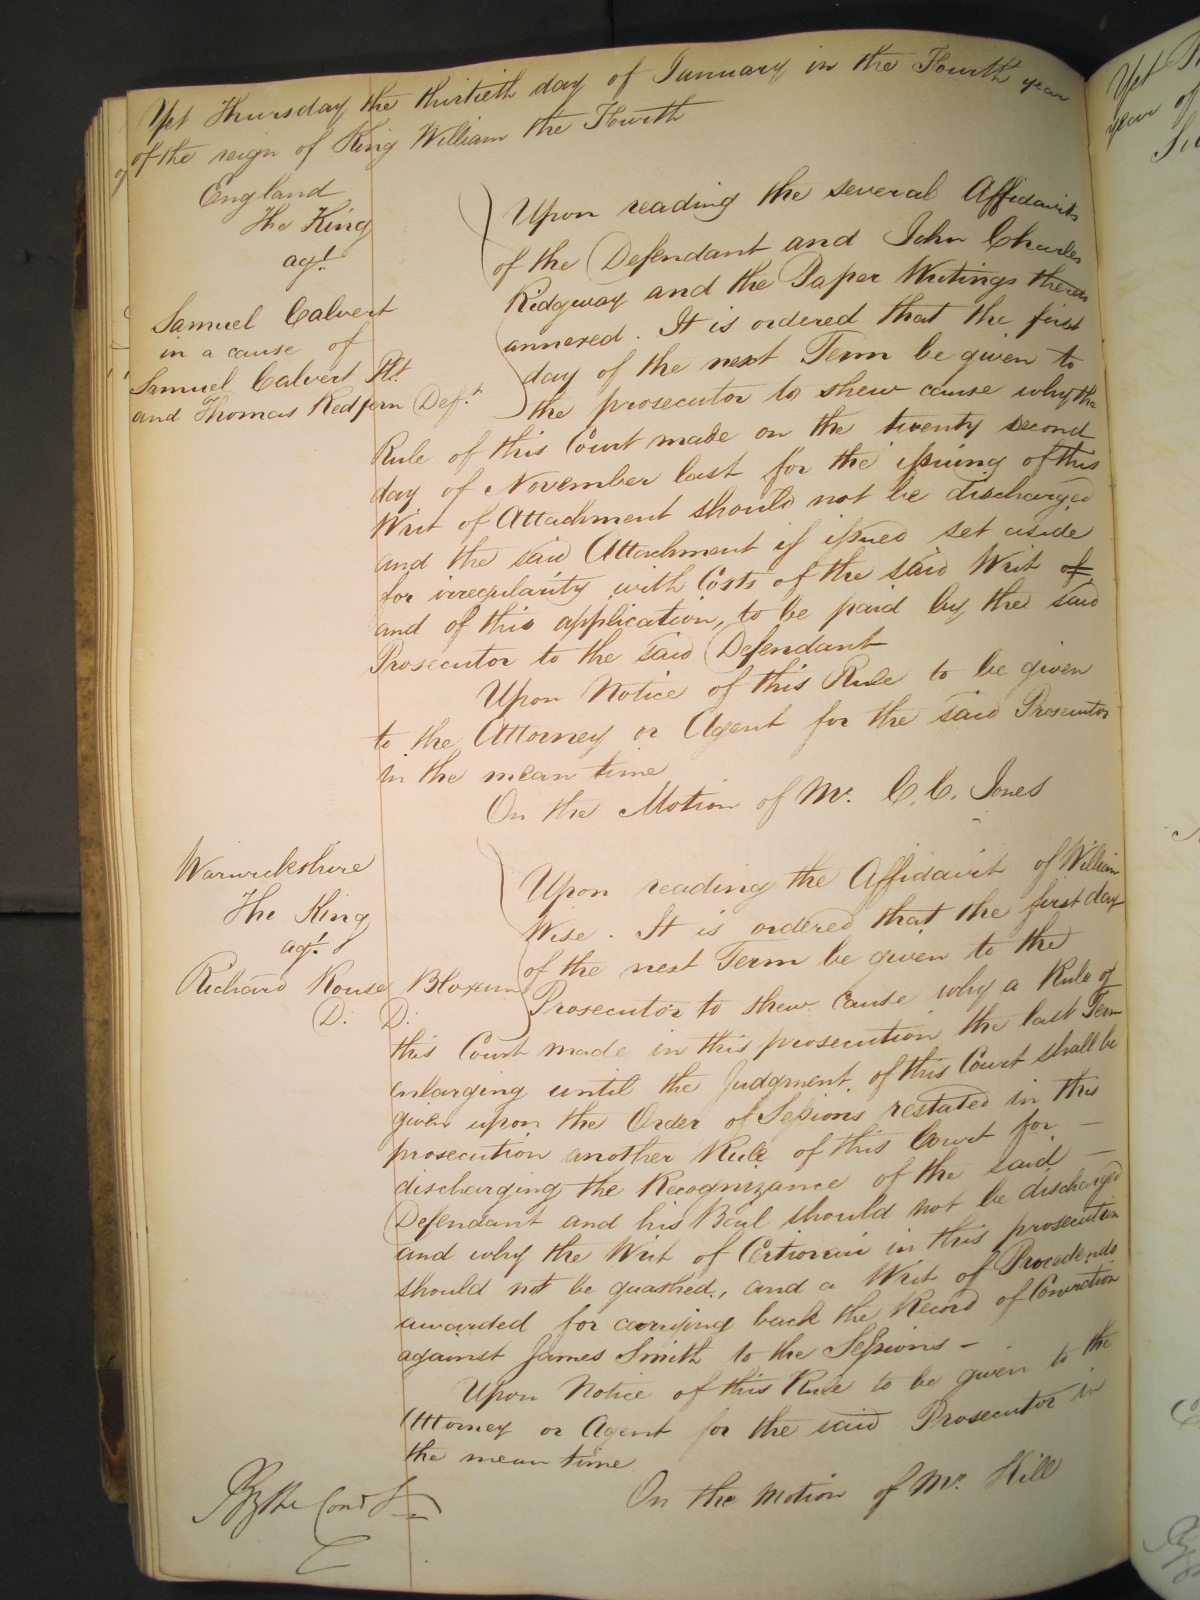 Yet Thursday the thirtieth day of January in the Fourth year
of the reign of King William the Fourth
England
The King
agt.
Samuel Calvert
in a cause of
Samuel Calvert Plt.
and Thomas Redfern Deft.
Upon reading the several Affidavits
of the Defendant and John Charles
Ridgway and the Paper Writings thereto
annexed. It is ordered that the first
day of the next Term be given to
the prosecutor to shew cause why the
Rule of this Court made on the twenty second
day of November last for the issuing of this
Writ of Attachment should not be discharged
and the said Attachment if issued set aside
for irregularity with Costs of the said Writ of
and of this application, to be paid by the said
Prosecutor to the said Defendant
Upon Notice of this Rule to be given
to the Attorney or Agent for the said Prosecutor
in the mean time
On the Motion of Mr. C. C. Jones
Warwickshire
The King
agt.
Richard Rouse Bloxum
D. D.
Upon reading the Affidavit of William
Wise. It is ordered that the first day
of the next Term be given to the
Prosecutor to shew cause why a Rule of
this Court made in this prosecution the last Term
enlarging until the Judgment of this Court shall be
given upon the Order of Sessions restated in this
prosecution another Rule of this Court for —
discharging the Recognizance of the said —
Defendant and his Bail should not be discharged
and why the Writ of Certiorari in this prosecution
should not be quashed, and a Writ of Procedendo
awarded for carrying back the Record of Conviction
against James Smith to the Sessions —
Upon Notice of this Rule to be given to the
Attorney or Agent for the said Prosecutor in
the mean time
On the Motion of Mr. Hill
By the Court
Yet
year of